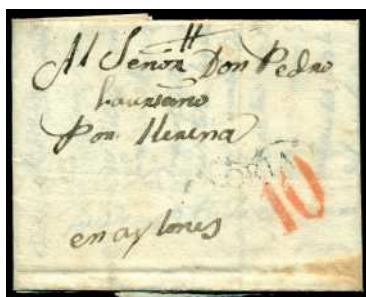 Al Señor Don Pedro
Lauriano
Por Llerena
10
en aylones